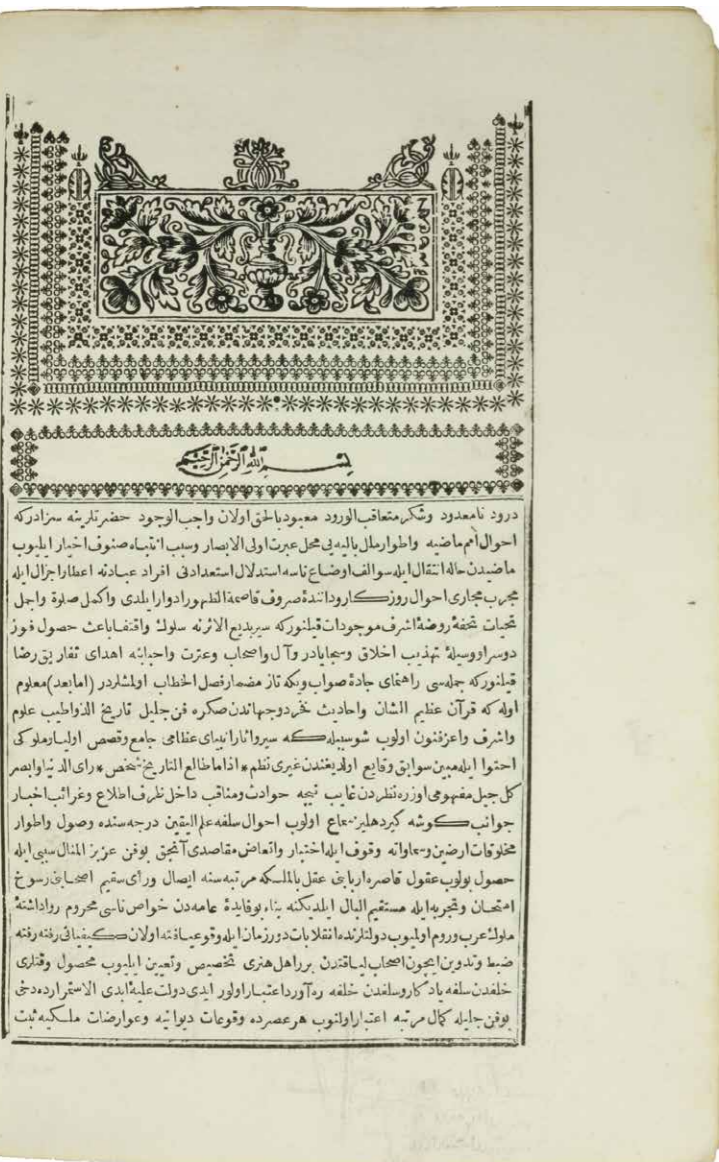 بسم الله الرحمن الرحيم
درود نامعدود وشكر متعاقب الورود معبود بالحق اولان واجب الوجود حضرتلرينه سزادركه
احوال امم ماضيه واطوار ملل باليه يى محل عبرت اولى الابصار وسبب انتباه صنوف اخيار ايليوب
ماضيدن حاله انتقال ايله سوالف اوضاع ناسه استدلال استعدادنى افراد عبادنه اعطار اجزال ايله
مجرب مجارى احوال روزكار وداننده صروف قاصمة الظهور ادوار ايلدى واكمل صلوة واجمل
تحيات تحفهٔ روضهٔ اشرف موجودات قيلنوركه سير بديع الاثرنه سلوك واقتفا باعث حصول فوز
دوسرا ووسيلهٔ تهذيب اخلاق وسجايادر وآل واصحاب وعترت واحبابنه اهداى تفاريق رضا
قيلنوركه جمله سى راهنماى جادهٔ صواب ويكه تاز مضمار فصل الخطاب اولمشلردر (اما بعد) معلوم
اوله كه قرآن عظيم الشان واحاديث فخر دوجهاندن صكره فن جليل تاريخ الذ واطيب علوم
واشرف واعز فنون اولوب شو سببله كه سير واثار انبياى عظامى جامع وقصص اوليا وملوكى
احتوا ايله مبين سوابق وقايع اولديغندن غيرى نظم * اذا ما طالع التاريخ شخص * راى الدنيا وابصر
كل جيل مفهومى اوزره نظردن غايب نيجه حوادث ومناقب داخل ظرف اطلاع وغرائب اخبار
جوانب كوشه كير دهليز سماع اولوب احوال سلفه علم اليقين درجه سنده وصول واطوار
مخلوقات ارضين وسماواته وقوف ايله اختبار واتعاض مقاصدى آنجق بوفن عزيز المنال سببى ايله
حصول بولوب عقول قاصره اربابنى عقل بالملكه مرتبه سنه ايصال وراى سقيم اصحابنى رسوخ
امتحان وتجربه ايله مستقيم البال ايلديكنه بناء بو فايدهٔ عامه دن خواص ناسى محروم رواداشتهٔ
ملوك عرب وروم اولميوب دولتلرنده انقلابات دور زمان ايله وقوعيافته اولان كيفياتى رفته رفته
ضبط وتدوين ايچون اصحاب لياقتدن بر اهل هنرى تخصيص وتعيين ايليوب محصول وقتلرى
خلفدن سلفه يادكار وسلفدن خلفه ره آورد اعتبار اولور ايدى دولت عليهٔ ابدى الاستمرارده دخى
بوفن جليله كمال مرتبه اعتبار اولنوب هر عصرده وقوعات ديوانيه وعوارضات ملكيه ثبت